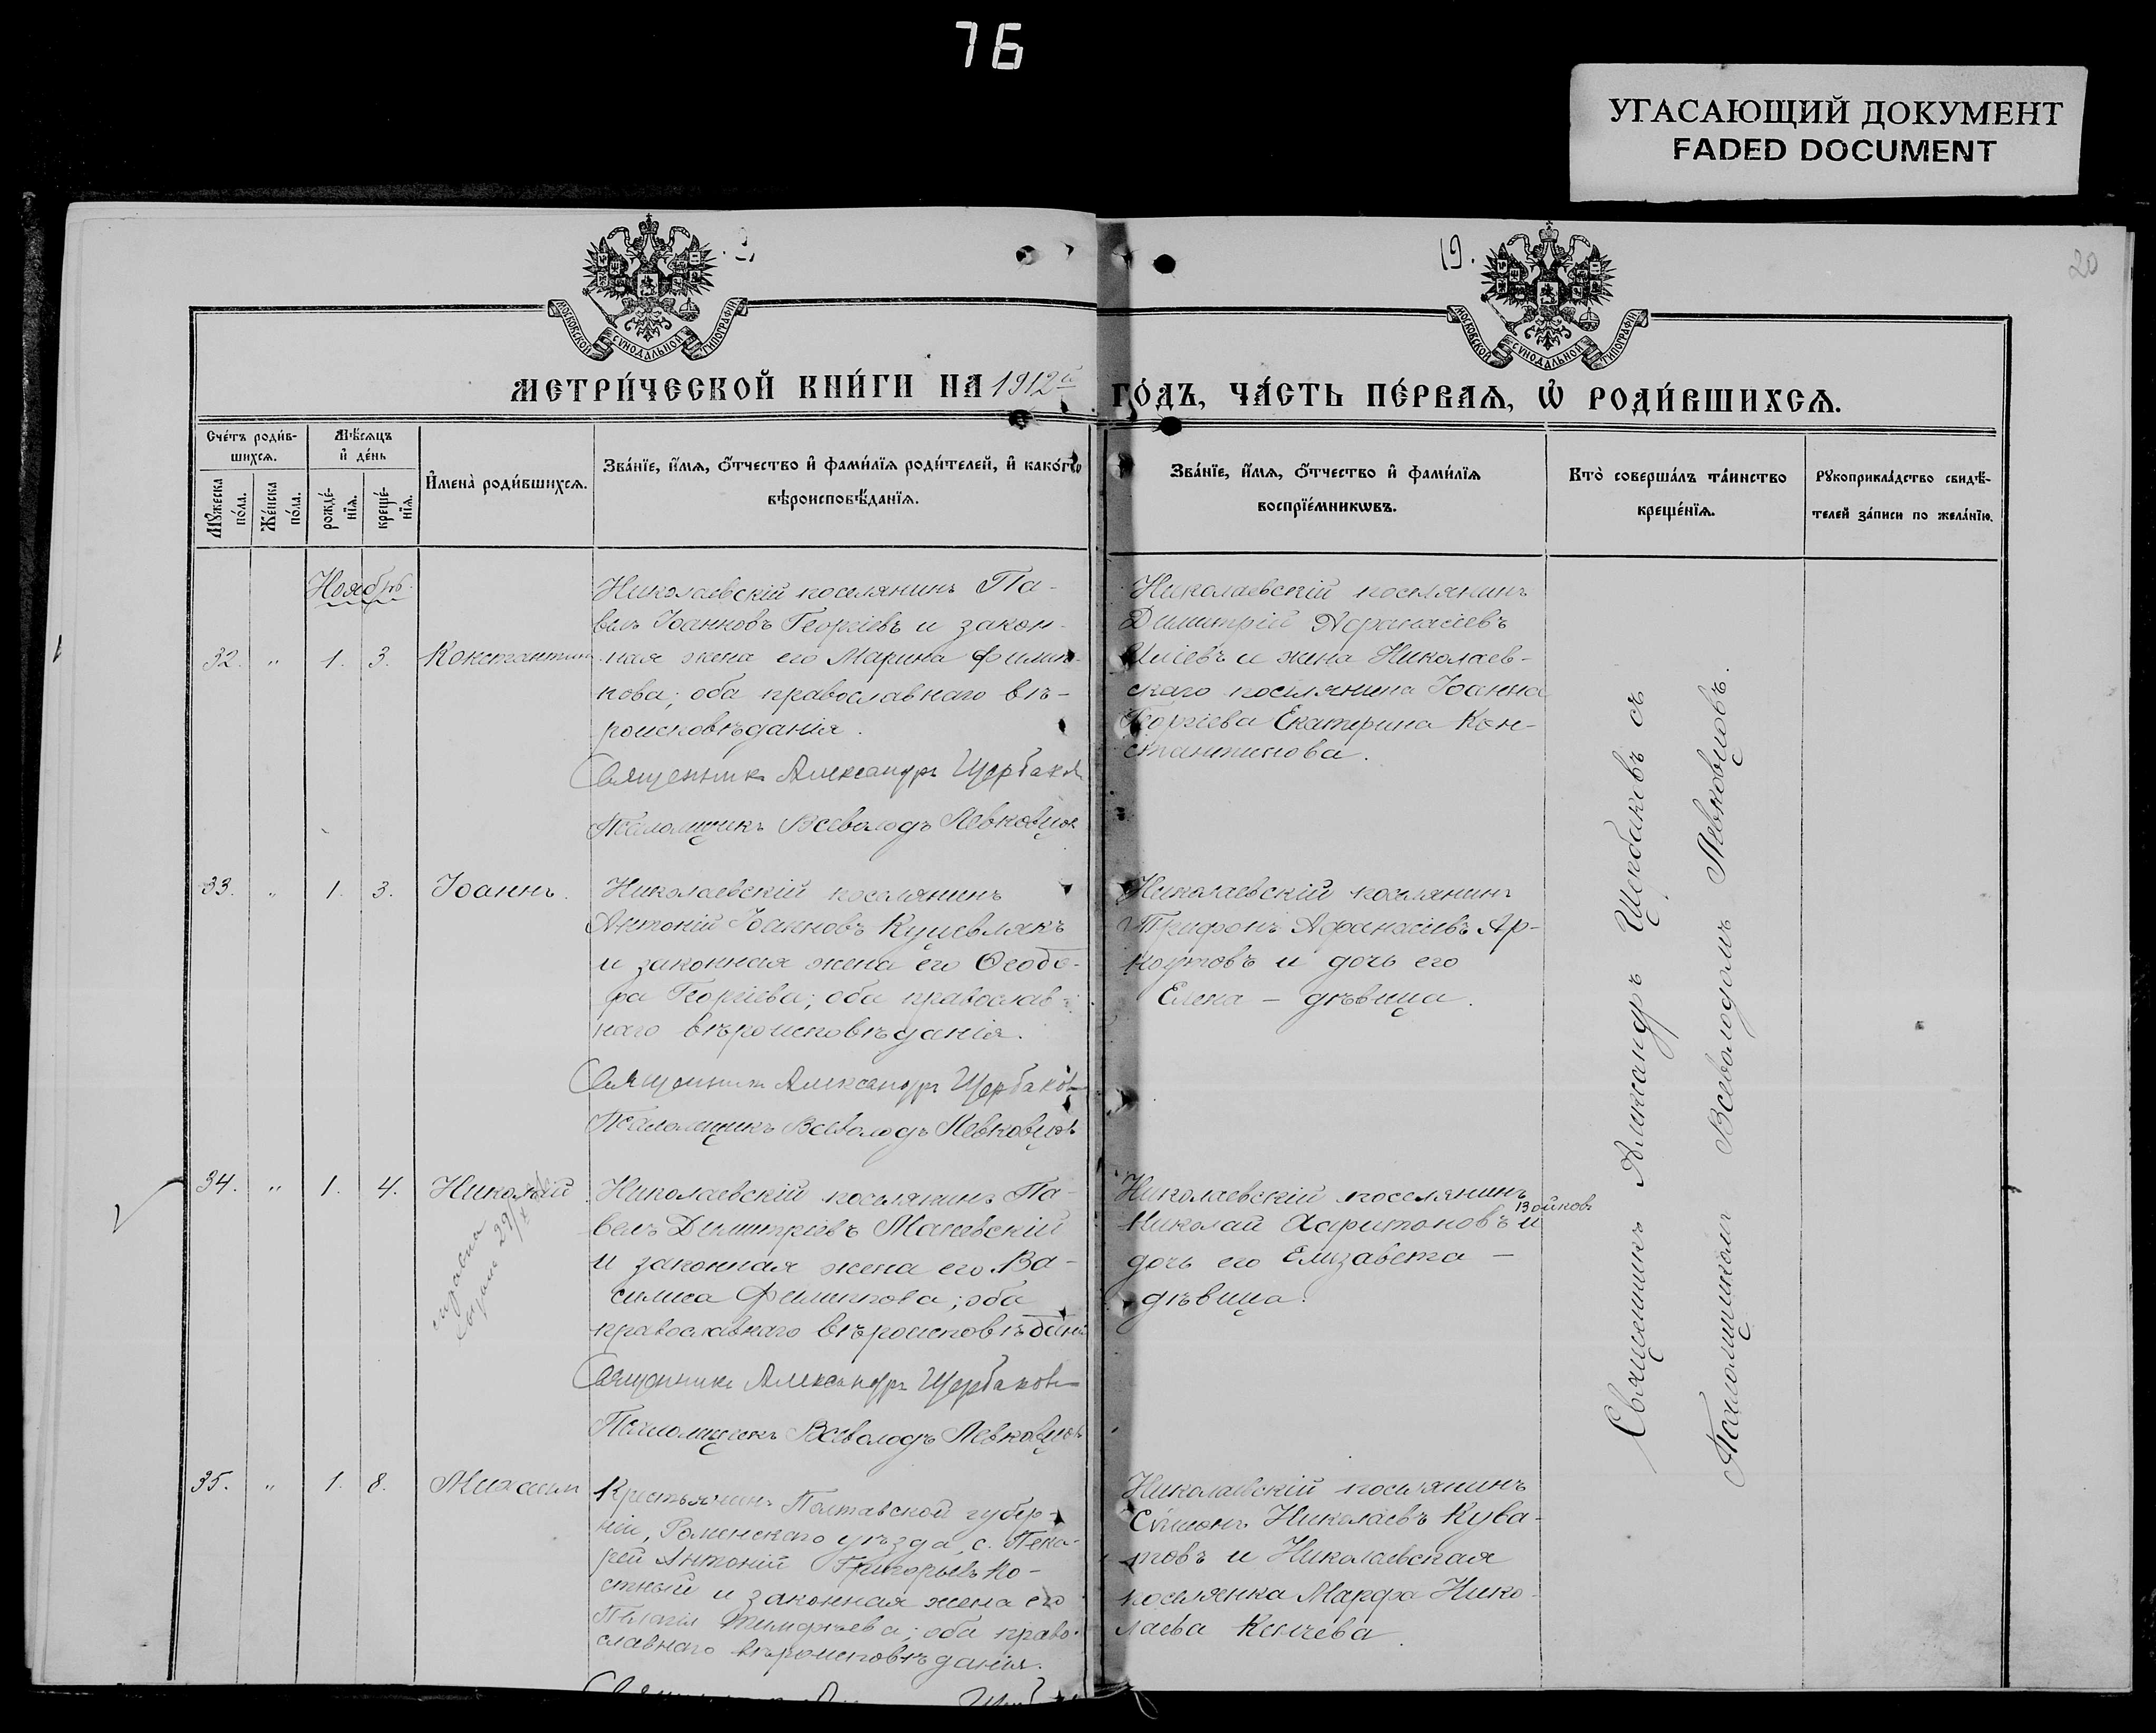 76
УГАСАЮЩИЙ ДОКУМЕНТ
FADED DOCUMENT
19.
20
МОСКОВСКОЙ СѴНОДАЛЬНОЙ ТИПОГРАФІИ
МОСКОВСКОЙ СѴНОДАЛЬНОЙ ТИПОГРАФІИ
МЕТРИ́ЧЕСКОЙ КНИ́ГИ НА 1912й ГО́ДЪ, ЧА́СТЬ ПЕ́РВАѦ, Ѡ҆ РОДИ́ВШИХСѦ.
Сче́тъ роди́в-
шихсѧ.
Мѣ́сѧцъ
и҆ де́нь
Мꙋ́жеска
по́ла.
Же́нска
по́ла.
рожде́-
нїѧ.
креще́-
нїѧ.
И҆мена̀ роди́вшихсѧ.
Зва́нїе, и҆́мѧ, ѻ҆́тчество и҆ фами́лїѧ роди́телей, и҆ како́гѡ
вѣроисповѣ́данїѧ.
Зва́нїе, и҆́мѧ, ѻ҆́тчество и҆ фами́лїѧ
воспрїе́мникѡвъ.
Кто̀ соверша́лъ та́инство
креще́нїѧ.
Рꙋкоприкла́дство свидѣ́-
телей за́писи по жела́нїю.
Ноябрь.
32. " 1. 3. Константинъ
Николаевскій поселянинъ Па-
велъ Іоанновъ Георгіевъ и закон-
ная жена его Марина Филип-
пова; оба православнаго вѣ-
роисповѣданія.
Священникъ Александръ Щербаковъ
Псаломщикъ Всеволодъ Левковцовъ
Николаевскій поселянинъ
Димитрій Аѳанасіевъ
Иліевъ и жена Николаев-
скаго поселянина Іоанна
Георгіева Екатерина Кон-
стантинова.
33. " 1. 3. Іоаннъ.
Николаевскій поселянинъ
Антоній Іоанновъ Кушевлякъ
и законная жена его Ѳеодо-
ра Георгіева; оба православ-
наго вѣроисповѣданія.
Священникъ Александръ Щербаковъ
Псаломщикъ Всеволодъ Левковцовъ
Николаевскій поселянинъ
Трифонъ Афанасіевъ Ар-
наутовъ и дочь его
Елена – дѣвица.
34. " 1. 4. Николай
Николаевскій поселянинъ Па-
велъ Димитріевъ Маневскій
и законная жена его Ва-
силиса Филиппова; оба
православнаго вѣроисповѣданія
Священникъ Александръ Щербаковъ
Псаломщикъ Всеволодъ Левковцовъ
Николаевскій поселянинъ
Войновъ
Николай Харитоновъ и
дочь его Елизавета –
дѣвица.
35. " 1. 8. Михаилъ
Крестьянинъ Полтавской губер-
ніи, Роменскаго уѣзда, с. Пека-
рей Антоній Григорьевъ Ко-
стный и законная жена его
Пелагія Тимофѣева; оба право-
славнаго вѣроисповѣданія.
Николаевскій поселянинъ
Сѵмеонъ Николаевъ Кува-
товъ и Николаевская
поселянка Марфа Нико-
лаева Келчева.
Священникъ Александръ Щербаковъ съ
Псаломщикомъ Всеволодомъ Левковцовъ.